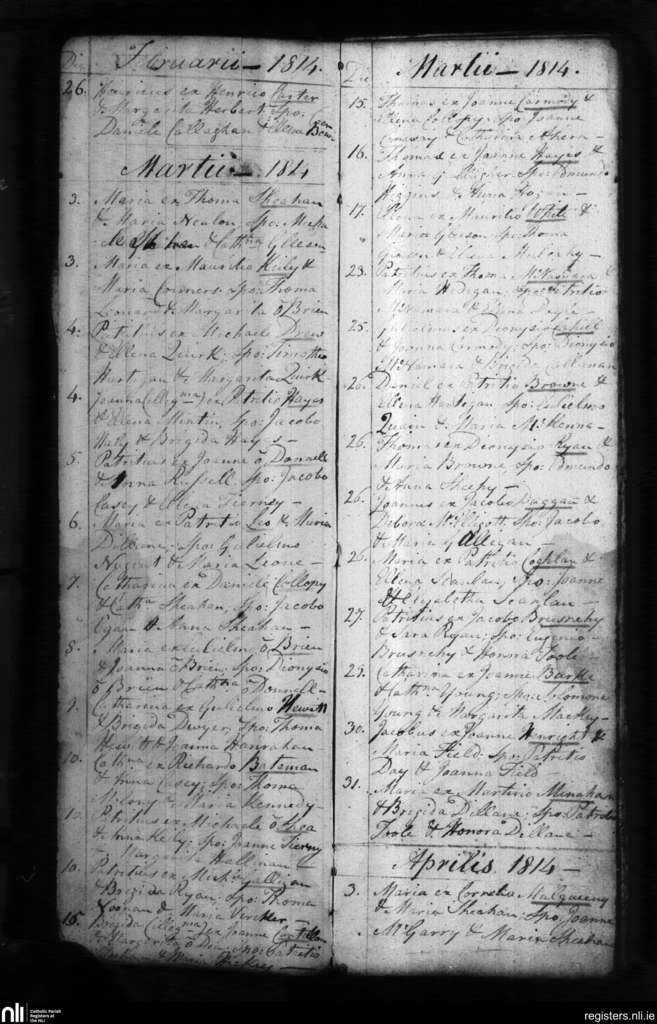 Die
Februarii - 1814.
26. Henricus ex Henrico Carter
& Margarita Herbert Spo:
Daniele Callaghan & Ellena
Martii - 1814
3. Maria ex Thoma Sheahan
& Maria Spo:
& Cathna Gleeson
3. Maria ex Mauritio Kiely &
Maria Connors Spo: Thoma
Leonard & Margarita ō Brien
4. Patritius ex Michaele Drew
& Ellena Quirk. Spo: Timotheo
Hartigan & Margarita Quirk
4. Joanna (illegma) ex Patritio Hayes
& Ellena Spo: Jacobo
& Brigida Hayes -
5. Patritius ex Joanne ō Donnell
& Anna Russell Spo: Jacobo
Casey & Tierney -
6. Maria ex Patritio Leo & Maria
Dillane: Spo: Gulielmo
Nugent & Maria Leone -
7. Catharina ex Daniele Collopy
& Cathna Sheahan, Spo: Jacobo
Egan & Anna Sheahan -
8. Maria ex Gulielmo ō Brien
& Joanna ō Brien. Spo: Dionysio
ō Brien & Cathna ō Donnell -
9. Catharina ex Gulielmo Hewitt
& Brigida Dwyer, Spo: Thoma
Hewitt & Joanna Hanrahan
10. Cathna ex Richardo Bateman
& Anna Casey; Spo: Thoma
& Maria Kennedy -
10. Patritius ex Michaele ō
& Anna Kiely; Spo: Joanne Tierny
& Margarita Hallinan
10. Patritius ex
& Brigida Ryan, Spo: Thoma
Noonan & Maria
15. Brigida (illegma) ex Joanne
& Margarita ō Dea Spo: Patritio
& Maria Hickey -
Die
Martii - 1814.
15. Thomas ex Joanne Carmody &
Ellena Spo: Joanne
& Catharina Ahern -
16. Thomas ex Joanne Hayes &
Anna Spo: Edmundo
Higgins & Anna Hogan -
17. ex Mauritio White &
Maria Gleeson Spo: Thoma
& Elena Mulcahy -
23. Patritius ex Thoma McNamara &
Maria Hedegan, Spo: Patritio
McNamara & Ellena Doyle
25. Gulielmus ex Dionysio Cahill
& Joanna Carmody; Spo: Dionysio
McNamara & Brigida Callanan
26. Daniel ex Patritio Browne &
Ellena Hartegan Spo: Gulielmo
Quain & Maria McKenna -
26. Thomas ex Dionysio Ryan &
Maria Browne, Spo: Edmundo
& Anna Sheehy -
26. Joannes ex Jacobo Duggan &
Debora McElligott Spo: Jacobo
& Maria Gallegan -
26. Maria ex Patritio Coghlan &
Ellena Scanlan, Spo: Joanne
& Elizabetha Scanlan -
27. Patritius ex Jacobo Brusnehy
& Sara Ryan; Spo: Eugenio
Brusnehy & Honora Toole -
29. Catharina ex Joanne Burke
& Cathna Young; Spo: Solomone
Young & Margarita Mackey -
30. Jacobus ex Joanne Henright &
Maria Field. Spo: Patritio
Day & Joanna Field -
31. Maria ex Martino Minahan
& Brigida Dillane; Spo: Patritio
Toole & Honora Dillane -
Aprilis 1814 -
3. Maria ex Cornelio Mulqueeny
& Maria Sheahan; Spo: Joanne
McGarry & Maria Sheahan
nli
Catholic Parish
Registers at
the NLI
registers.nli.ie